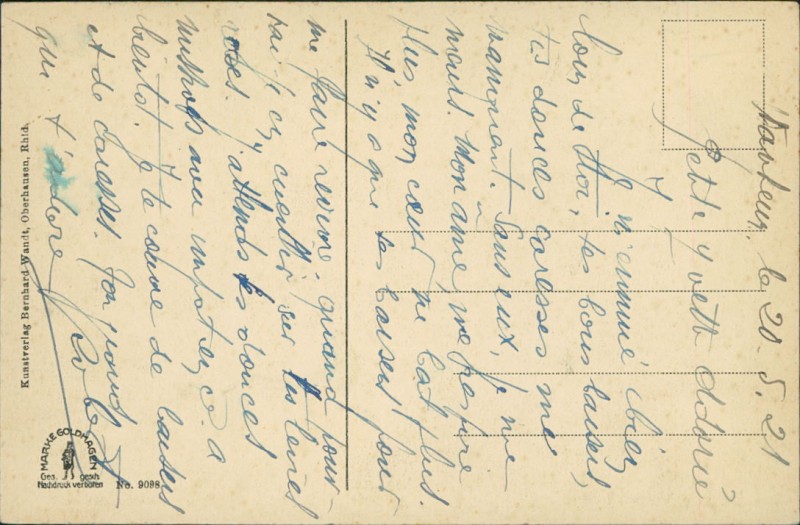 le 20.5.21
Petite Yvette adorée
Je m'ennuie bien
loin de Moi, tes bons baisers,
tes douces caresses me
manquent. Sans eux, je me
meurs. Mon âme ne respire
plus, mon cœur ne bat plus.
Il n'y a que tes baisers pour
me faire revivre. quand pour-
rai je en cueillir sur tes lèvres
roses. J'attends tes douces
avec impatience. a
bientôt. Je te couvre de baisers
et de caresses. Ton grand
qui t'adore
Kunstverlag Bernhard Wandt, Oberhausen, Rhld.
MARKE GOLDMAGEN
Ges. gesch.
Nachdruck verboten
No. 9088